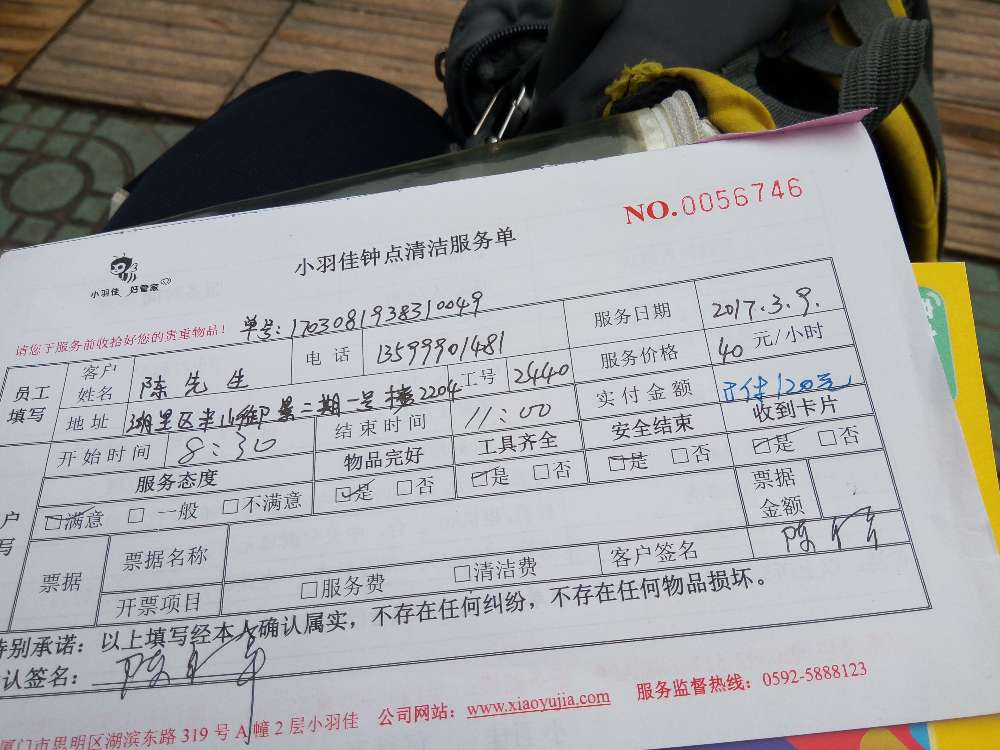 NO.0056746
小羽佳 好管家
小羽佳钟点清洁服务单
请您于服务前收拾好您的贵重物品！ 单号：1703081938310049
员工填写 客户姓名 陈先生 电话 13599901481 服务日期 2017.3.9.
地址 湖里区半山御景二期一号楼2204 工号 2440 服务价格 40 元/小时
开始时间 8：30 结束时间 11：00 实付金额 120元
服务态度 物品完好 工具齐全 安全结束 收到卡片
户写 ☑满意 □一般 □不满意 ☑是 □否 ☑是 □否 ☑是 □否 ☑是 □否
票据 票据名称 票据金额
开票项目 □服务费 □清洁费 客户签名 陈
特别承诺：以上填写经本人确认属实，不存在任何纠纷，不存在任何物品损坏。
认签名： 陈
厦门市思明区湖滨东路 319 号 A 幢 2 层小羽佳 公司网站：www.xiaoyujia.com 服务监督热线：0592-5888123